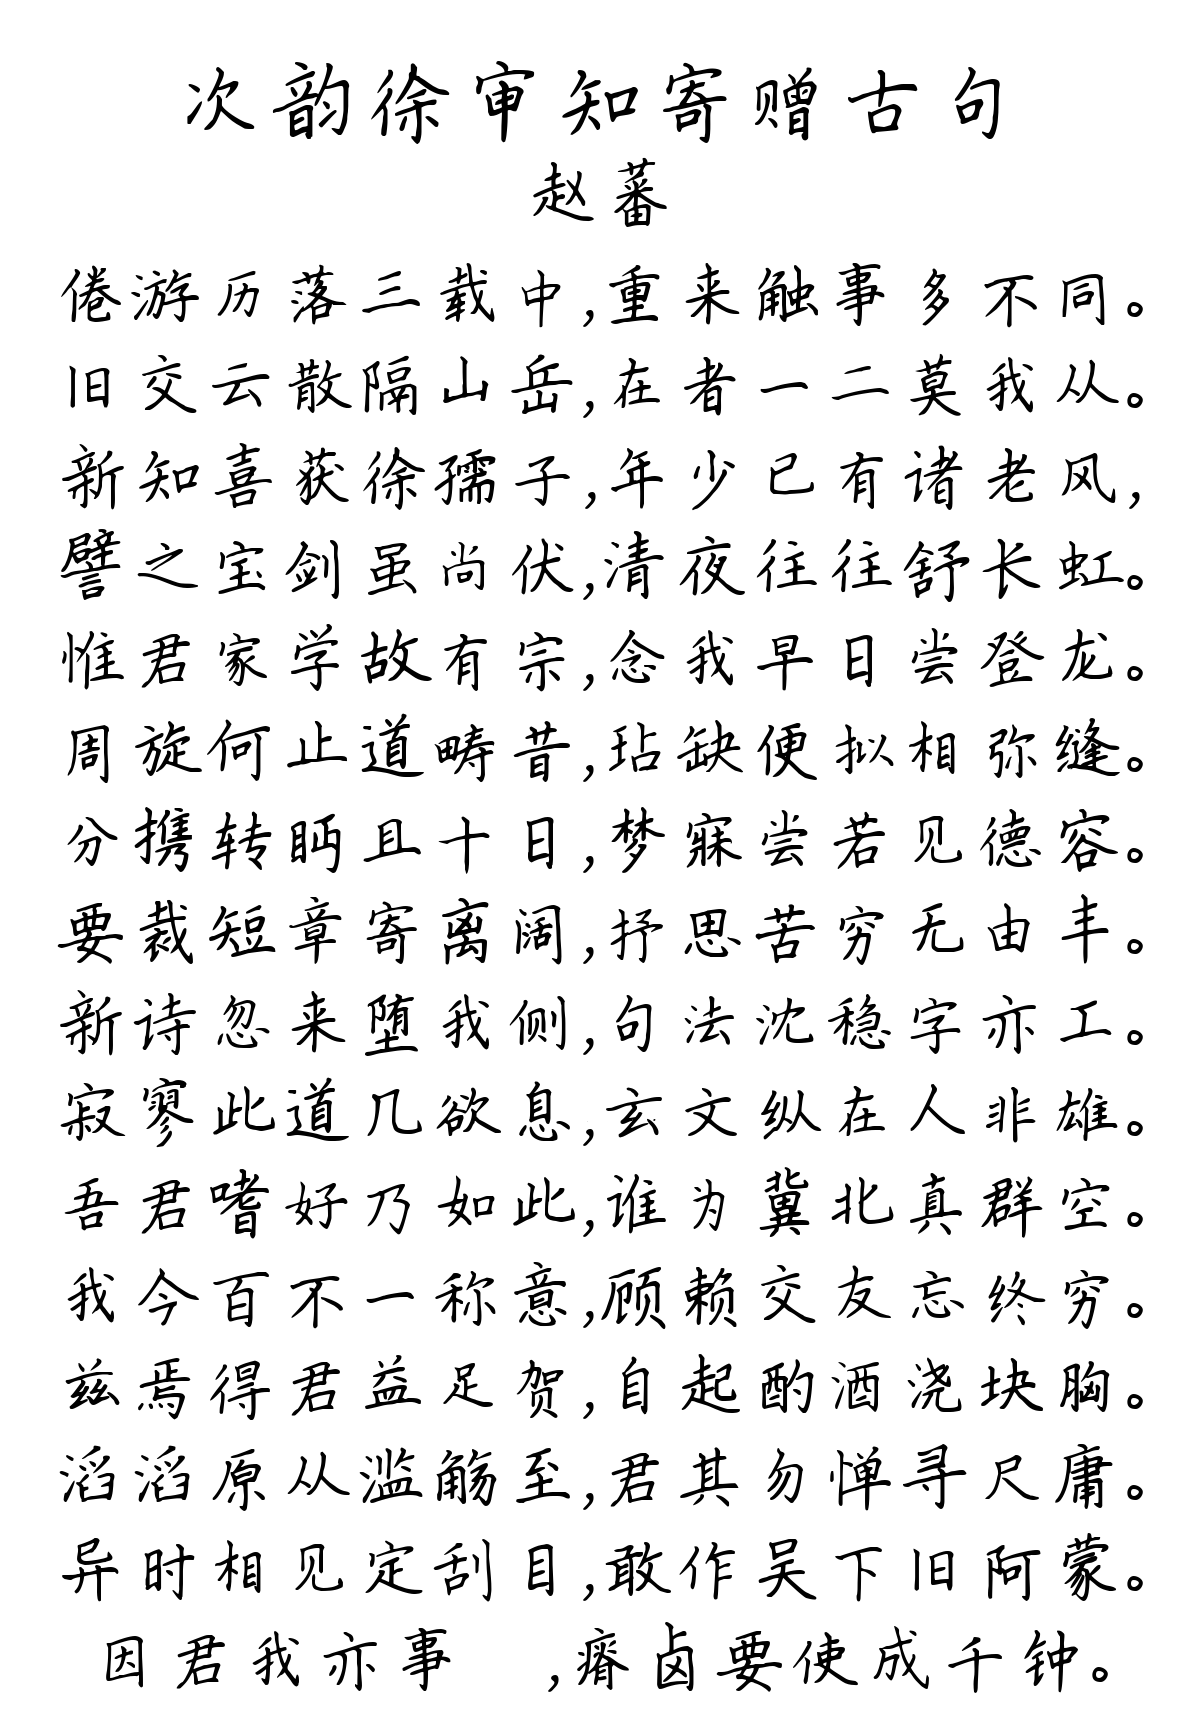 次韵徐审知寄赠古句
赵蕃
倦游历落三载中,重来触事多不同。
旧交云散隔山岳,在者一二莫我从。
新知喜获徐孺子,年少已有诸老风,
譬之宝剑虽尚伏,清夜往往舒长虹。
惟君家学故有宗,念我早日尝登龙。
周旋何止道畴昔,玷缺便拟相弥缝。
分携转眄且十日,梦寐尝若见德容。
要裁短章寄离阔,抒思苦穷无由丰。
新诗忽来堕我侧,句法沈稳字亦工。
寂寥此道几欲息,玄文纵在人非雄。
吾君嗜好乃如此,谁为冀北真群空。
我今百不一称意,顾赖交友忘终穷。
兹焉得君益足贺,自起酌酒浇块胸。
滔滔原从滥觞至,君其勿惮寻尺庸。
异时相见定刮目,敢作吴下旧阿蒙。
因君我亦事 ,瘠卤要使成千钟。